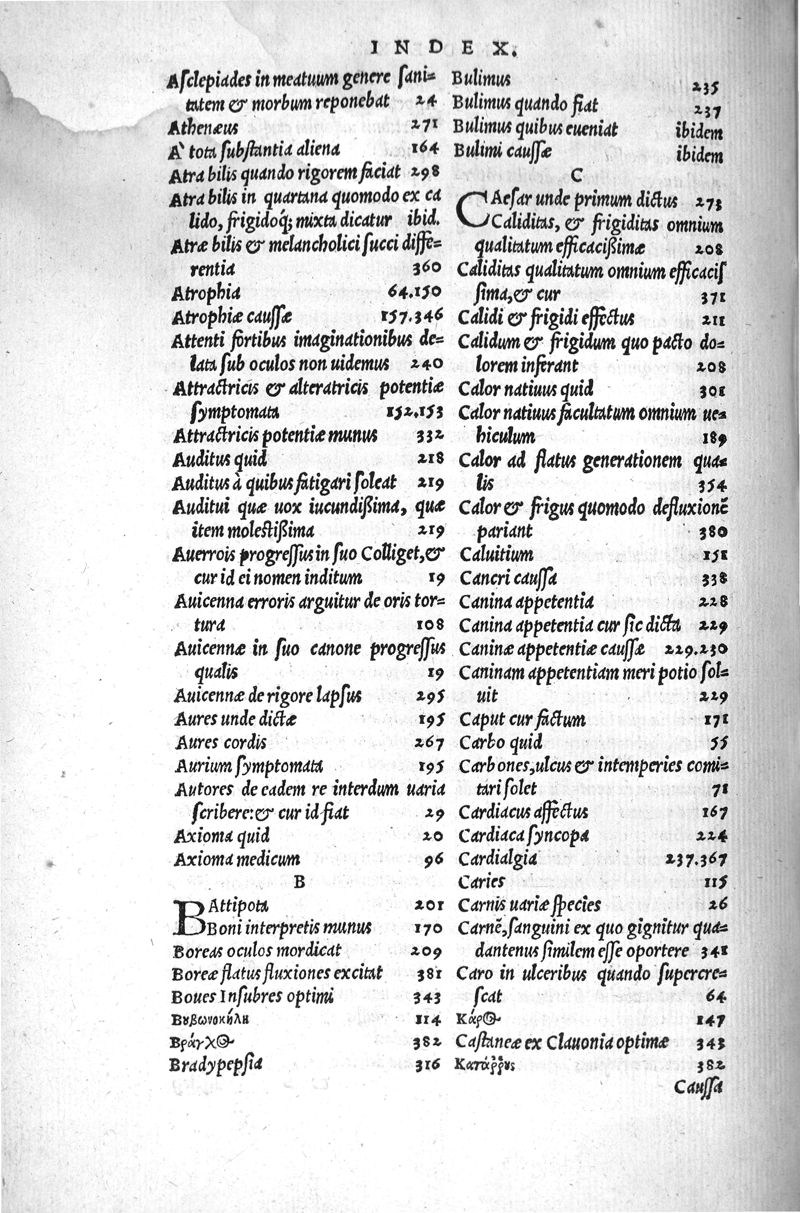 INDEX.
Aſclepiades in meatuum genere ſani-
tatem & morbum reponebat 24
Athenæus 271
A` tota ſubſtantia aliena 164
Atra bilis quando rigorem faciat 298
Atra bilis in quartana quomodo ex ca
lido, frigidoq; mixta dicatur ibid.
Atræ bilis & melancholici ſucci diffe-
rentia 360
Atrophia 64.150
Atrophiæ cauſſæ 157.346
Attenti fortibus imaginationibus de-
lata ſub oculos non uidemus 240
Attractricis & alteratricis potentiæ
ſymptomata 152.153
Attractricis potentiæ munus 332
Auditus quid 218
Auditus à quibus fatigari ſoleat 219
Auditui quæ uox iucundißima, quæ
item moleſtißima 219
Auerrois progreſſus in ſuo Colliget, &
cur id ei nomen inditum 19
Auicenna erroris arguitur de oris tor-
tura 108
Auicennæ in ſuo canone progreſſus
qualis 19
Auicennæ de rigore lapſus 295
Aures unde dictæ 195
Aures cordis 267
Aurium ſymptomata 195
Autores de eadem re interdum uaria
ſcribere: & cur id fiat 29
Axioma quid 20
Axioma medicum 96
B
BAttipota 201
Boni interpretis munus 170
Boreas oculos mordicat 209
Boreæ flatus fluxiones excitat 381
Boues Inſubres optimi 343
Βουβωνοκήλη 114
Βράγχος 382
Bradypepſia 316
Bulimus 235
Bulimus quando fiat 237
Bulimus quibus eueniat ibidem
Bulimi cauſſæ ibidem
C
CAeſar unde primum dictus 273
Caliditas, & frigiditas omnium
qualitatum efficacißimæ 208
Caliditas qualitatum omnium efficaciſ
ſima, & cur 371
Calidi & frigidi effectus 211
Calidum & frigidum quo pacto do-
lorem inferant 208
Calor natiuus quid 301
Calor natiuus facultatum omnium ue-
hiculum 189
Calor ad flatus generationem qua-
lis 354
Calor & frigus quomodo defluxionē
pariant 380
Caluitium 151
Cancri cauſſa 338
Canina appetentia 228
Canina appetentia cur ſic dicta 229
Caninæ appetentiæ cauſſæ 229.230
Caninam appetentiam meri potio ſol-
uit 229
Caput cur factum 171
Carbo quid 55
Carbones, ulcus & intemperies comi-
tari ſolet 71
Cardiacus affectus 167
Cardiaca ſyncopa 224
Cardialgia 237.367
Caries 115
Carnis uariæ ſpecies 26
Carnē, ſanguini ex quo gignitur qua-
dantenus ſimilem eſſe oportere 341
Caro in ulceribus quando ſupercre-
ſcat 64
Κάρος 147
Caſtaneæ ex Clauonia optimæ 343
Κατάῤῥους 382
Cauſſa